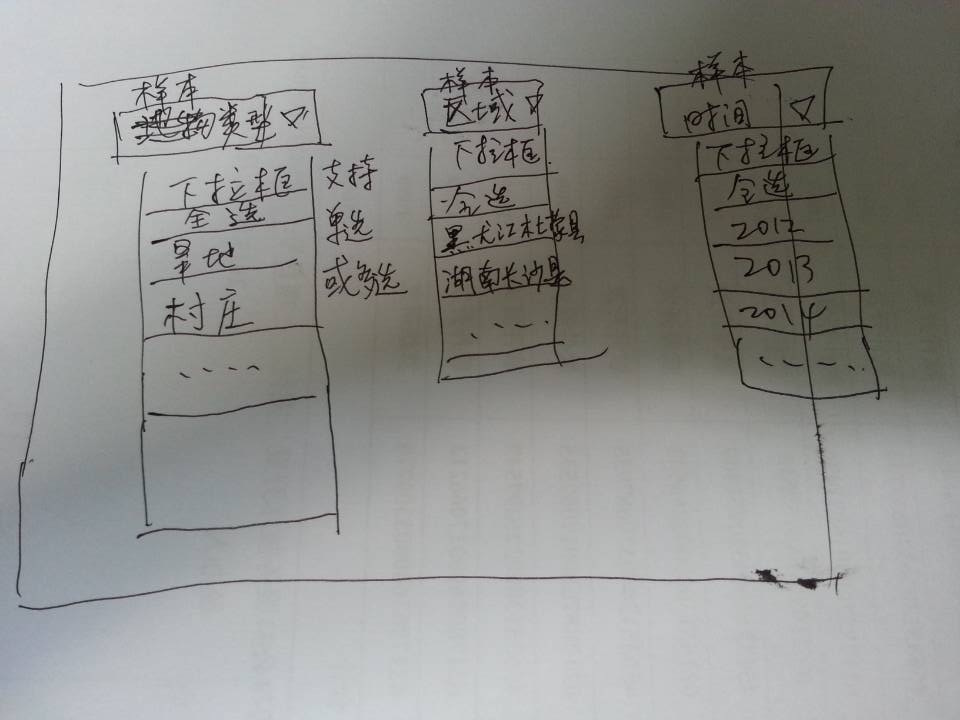 样本
类型
下拉框
全选
旱地
村庄
....
支持
单选
或多选
样本
区域
下拉框
全选
黑龙江杜蒙县
湖南长沙县
....
样本
时间
下拉框
全选
2012
2013
2014
.....